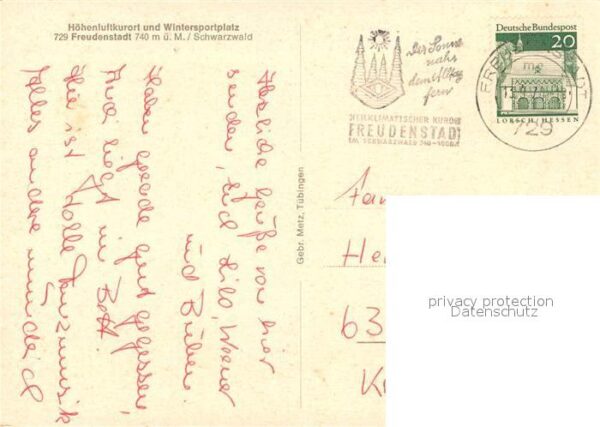 Höhenluftkurort und Wintersportplatz
729 Freudenstadt 740 m ü. M. / Schwarzwald
Herzliche Grüße von hier
senden, Lilo, Werner
und Buben.
Haben gerade gut gegessen,
liegt im Bett.
Hier ist tolle Tanzmusik
Alles andere mündlich
Gebr. Metz, Tübingen
Der Sonne
nah
dem Alltag
fern
HEILKLIMATISCHER KURORT
FREUDENSTADT
IM SCHWARZWALD 740-1000M
Deutsche Bundespost
20
LORSCH/HESSEN
FREUDENSTADT
729
Fam
He
63
K
privacy protection
Datenschutz